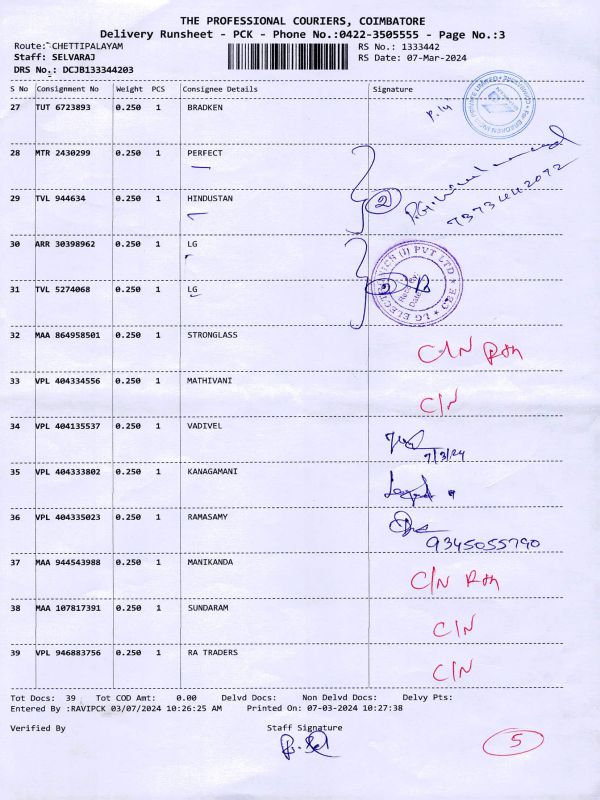 THE PROFESSIONAL COURIERS, COIMBATORE
Delivery Runsheet - PCK - Phone No.:0422-3505555 - Page No.:3
Route: CHETTIPALAYAM RS No.: 1333442
Staff: SELVARAJ RS Date: 07-Mar-2024
DRS No.: DCJB133344203
S No Consignment No Weight PCS Consignee Details Signature
27 TUT 6723893 0.250 1 BRADKEN
28 MTR 2430299 0.250 1 PERFECT
29 TVL 944634 0.250 1 HINDUSTAN 2
9373442072
30 ARR 30398962 0.250 1 LG
31 TVL 5274068 0.250 1 LG
LG ELECTRONICS (I) PVT LTD
32 MAA 864958501 0.250 1 STRONGLASS C/N
33 VPL 404334556 0.250 1 MATHIVANI C/N
34 VPL 404135537 0.250 1 VADIVEL
7/3/24
35 VPL 404333802 0.250 1 KANAGAMANI
36 VPL 404335023 0.250 1 RAMASAMY
9345055790
37 MAA 944543988 0.250 1 MANIKANDA C/N
38 MAA 107817391 0.250 1 SUNDARAM C/N
39 VPL 946883756 0.250 1 RA TRADERS C/N
Tot Docs: 39 Tot COD Amt: 0.00 Delvd Docs: Non Delvd Docs: Delvy Pts:
Entered By :RAVIPCK 03/07/2024 10:26:25 AM Printed On: 07-03-2024 10:27:38
Verified By Staff Signature
5